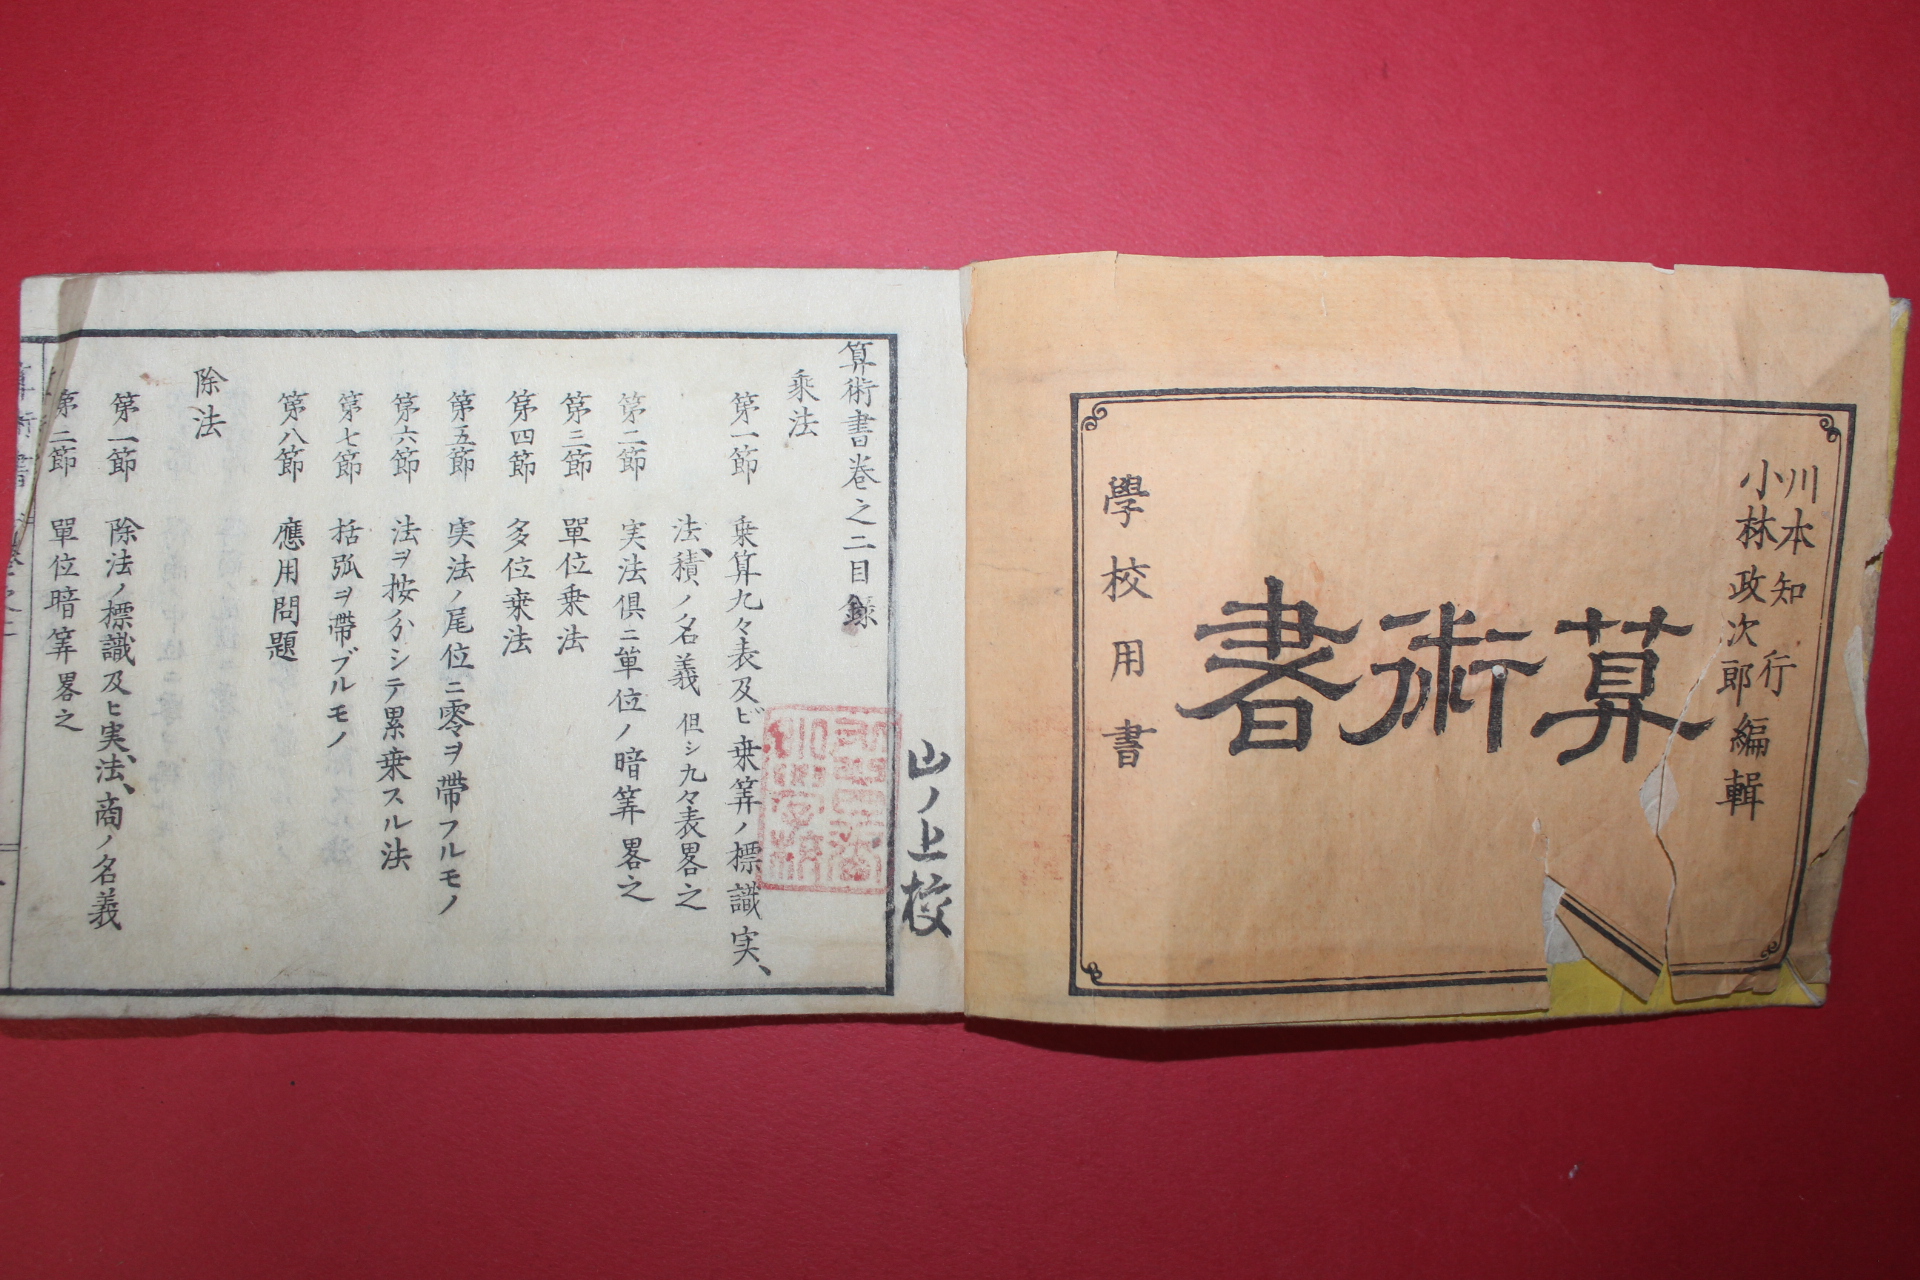 川本知行
小林政次郎 編輯
算術書
學校用書
山ノ上校
算術書巻之二目錄
乗法
第一節 乗算九々表及ビ乗筭ノ標識実、
法、積、ノ名義 但シ九々表畧之
第二節 実法俱ニ單位ノ暗筭畧之
第三節 單位乗法
第四節 多位乗法
第五節 実法ノ尾位ニ零ヲ帶フルモノ
第六節 法ヲ按分シテ累乗スル法
第七節 括弧ヲ帶ブルモノ
第八節 應用問題
除法
第一節 除法ノ標識及ヒ実、法、商ノ名義
第二節 單位暗筭畧之